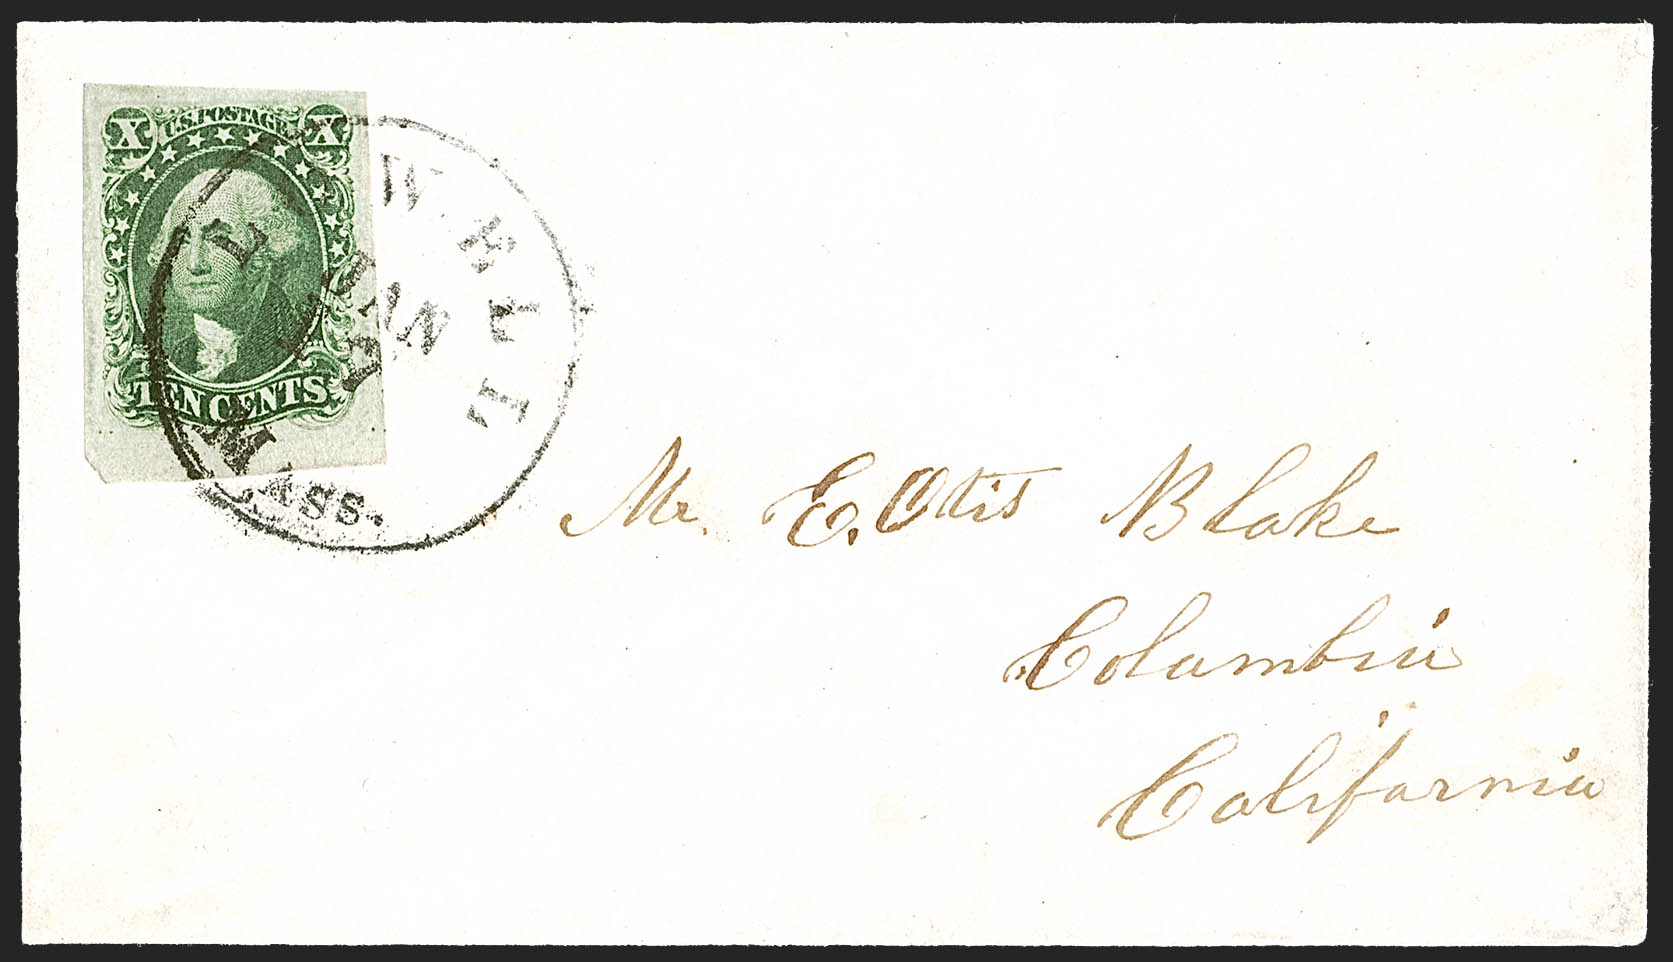 X U.S. POSTAGE X
TEN CENTS
LOWELL
JAN
MASS.
Mr. E. Otis Blake
Columbia
California